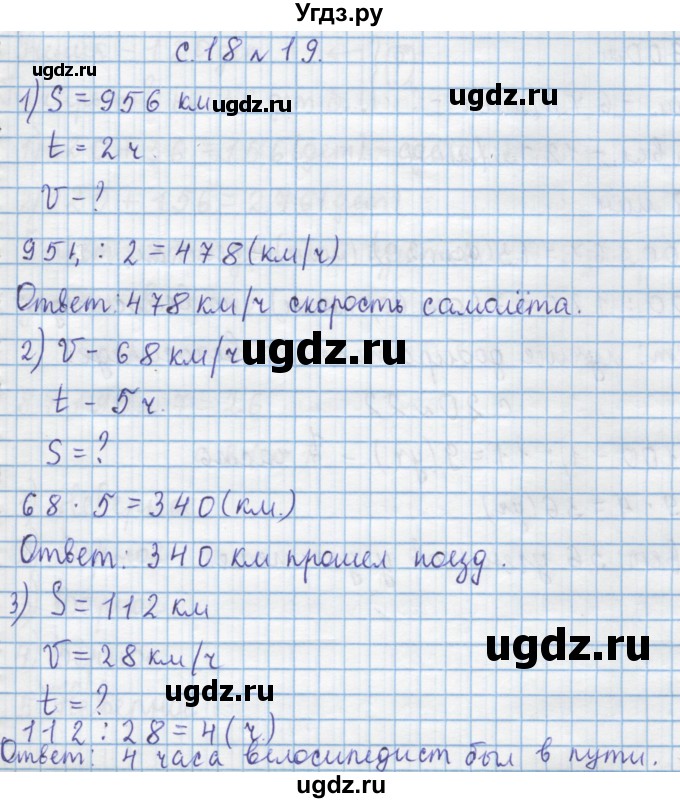 Угдз.ру
с. 18 № 19.
ugdz.ru
1) S = 956 км
ugdz.ru
ugdz.ru
t = 2 ч.
v - ?
: 2 = 478 (км/ч)
Ответ: 478 км/ч скорость самолёта.
2) v - 68 км/ч
ugdz.ru
t - 5 ч.
S = ?
68 · 5 = 340 (км)
Ответ: 340 км прошел поезд.
3) S = 112 км
ugdz.ru
v = 28 км/ч
ugdz.ru
t = ?
112 : 28 = 4 (ч)
Ответ: 4 часа велосипедист был в пути.
ugdz.ru